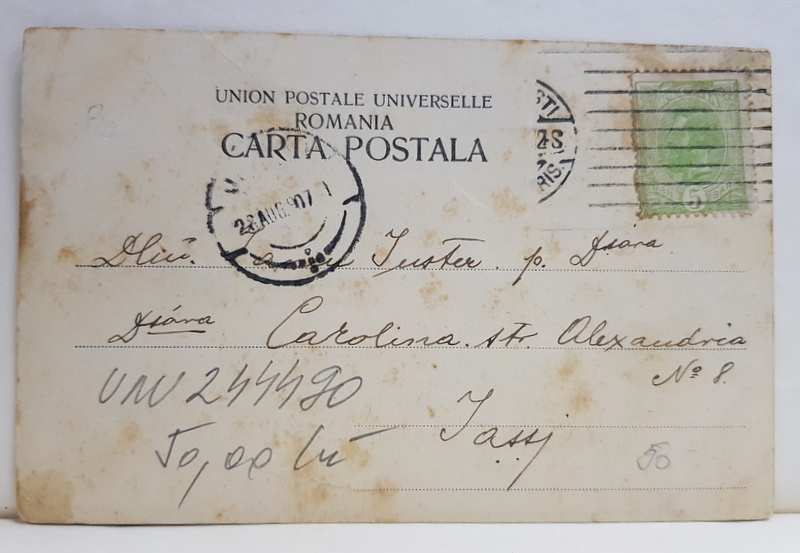 UNION POSTALE UNIVERSELLE
ROMANIA
CARTA POSTALA
STI
RIS.
28 AUG 907
5
Dlui Juster p. Dsóra
Dsóra Carolina. str. Alexandria
No 8.
UNV 244490
Jassj
50,00 lei
50